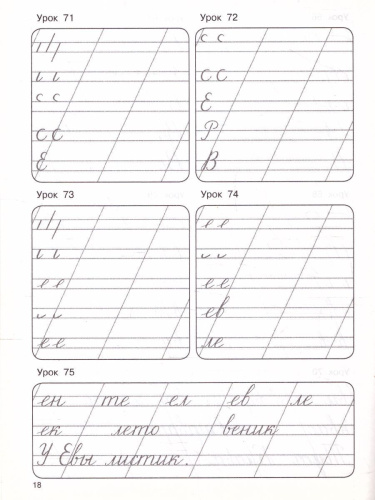 Урок 71
и и
с с
С С
Е
Урок 72
с с
С С
Е
Р
В
Урок 73
и и
е е
е е
Урок 74
е е
е е
ев
ле
Урок 75
ен те ел ев ле
ек лето веник
У Евы листик.
18